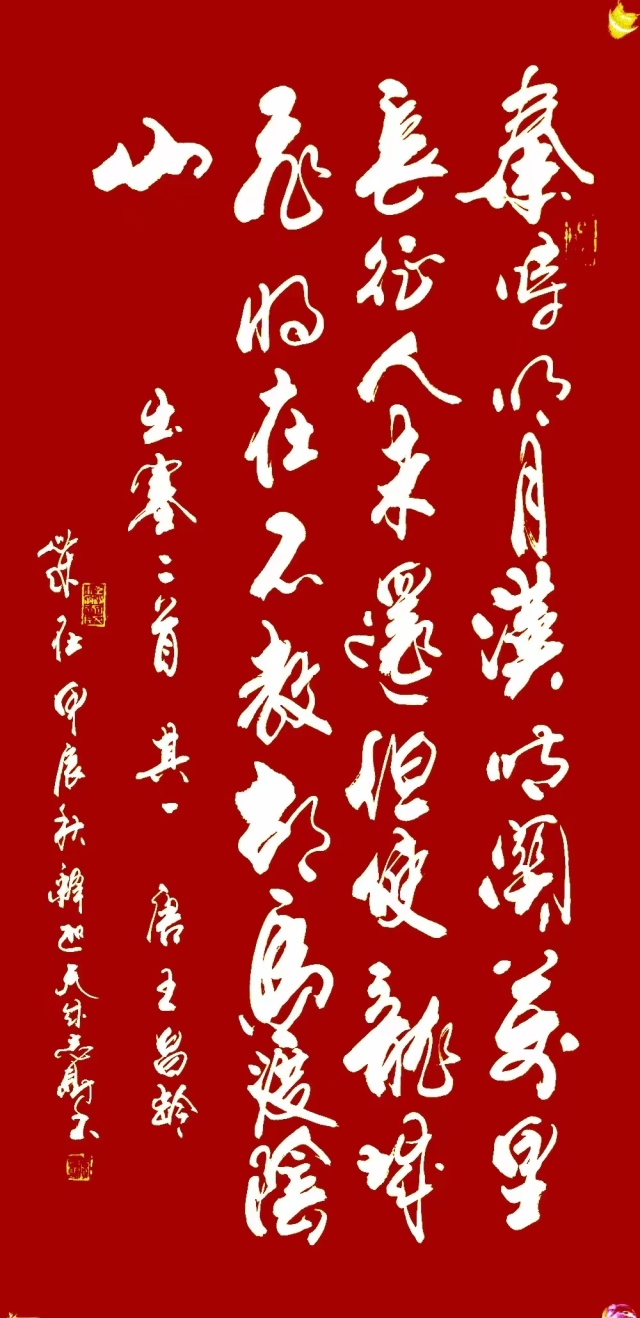 秦時明月漢時關萬里
長征人未還但使龍城
飛將在不教胡馬渡陰
山
出塞二首 其一 唐 王昌齡
歲在甲辰秋韓